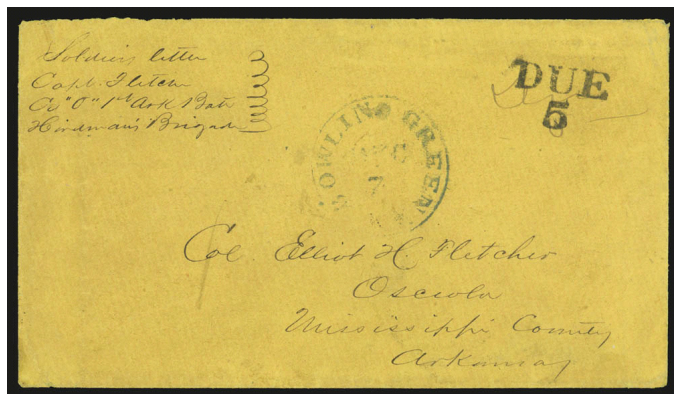 Soldiers letter
Capt. Fletcher
Co "D" 1st Ark Batn
Hindman's Brigade
DUE
5
BOWLING GREEN
7
Col. Elliot H. Fletcher
Osceola
Mississippi County
Arkansas